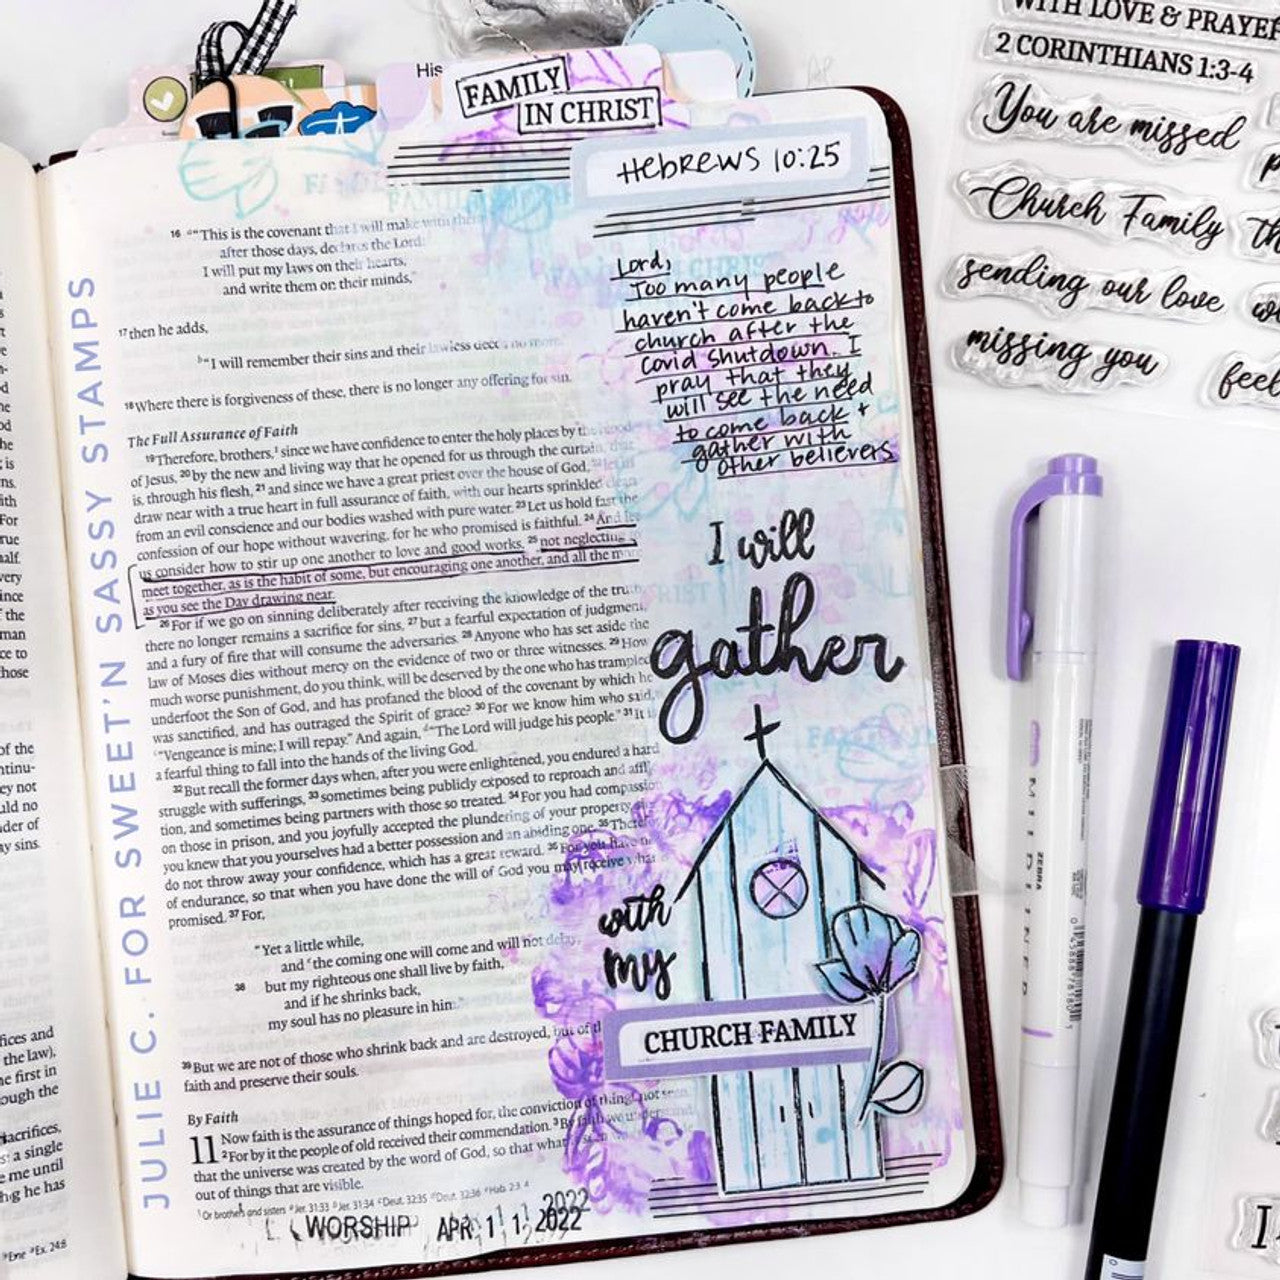 His
FAMILY
IN CHRIST
Hebrews 10:25
16 "This is the covenant that I will make with them
after those days, declares the Lord:
I will put my laws on their hearts,
and write them on their minds,"
17 then he adds,
"I will remember their sins and their lawless deeds no more."
18 Where there is forgiveness of these, there is no longer any offering for sin.
The Full Assurance of Faith
19 Therefore, brothers, since we have confidence to enter the holy places by the blood
of Jesus, 20 by the new and living way that he opened for us through the curtain, that
is, through his flesh, 21 and since we have a great priest over the house of God, 22 let us
draw near with a true heart in full assurance of faith, with our hearts sprinkled clean
from an evil conscience and our bodies washed with pure water. 23 Let us hold fast the
confession of our hope without wavering, for he who promised is faithful. 24 And let
us consider how to stir up one another to love and good works, 25 not neglecting
meet together, as is the habit of some, but encouraging one another, and all the more
as you see the Day drawing near.
26 For if we go on sinning deliberately after receiving the knowledge of the truth,
there no longer remains a sacrifice for sins, 27 but a fearful expectation of judgment,
and a fury of fire that will consume the adversaries. 28 Anyone who has set aside the
law of Moses dies without mercy on the evidence of two or three witnesses. 29 How
much worse punishment, do you think, will be deserved by the one who has trampled
underfoot the Son of God, and has profaned the blood of the covenant by which he
was sanctified, and has outraged the Spirit of grace? 30 For we know him who said,
"Vengeance is mine; I will repay." And again, "The Lord will judge his people." 31 It is
a fearful thing to fall into the hands of the living God.
32 But recall the former days when, after you were enlightened, you endured a hard
struggle with sufferings, 33 sometimes being publicly exposed to reproach and affl
tion, and sometimes being partners with those so treated. 34 For you had compassion
on those in prison, and you joyfully accepted the plundering of your property, si
you knew that you yourselves had a better possession and an abiding one. 35 Theref
do not throw away your confidence, which has a great reward. 36 For you have ne
of endurance, so that when you have done the will of God you may receive what
promised. 37 For,
"Yet a little while,
and the coming one will come and will not delay;
38 but my righteous one shall live by faith,
and if he shrinks back,
my soul has no pleasure in him."
39 But we are not of those who shrink back and are destroyed, but of th
faith and preserve their souls.
By Faith
11 Now faith is the assurance of things hoped for, the conviction of things not seen.
2 For by it the people of old received their commendation. 3 By faith we understand
that the universe was created by the word of God, so that what
out of things that are visible.
1 Or brothers and sisters
WORSHIP APR 11 2022
2022
Lord,
Too many people
haven't come back to
church after the
Covid shutdown. I
pray that they
will see the need
to come back +
gather with
other believers
I will
gather
with
my
CHURCH FAMILY
JULIE C. FOR SWEET'N SASSY STAMPS
WITH LOVE & PRAYER
2 CORINTHIANS 1:3-4
You are missed
Church Family
sending our love
missing you
feel
MILDLINER
ZEBRA